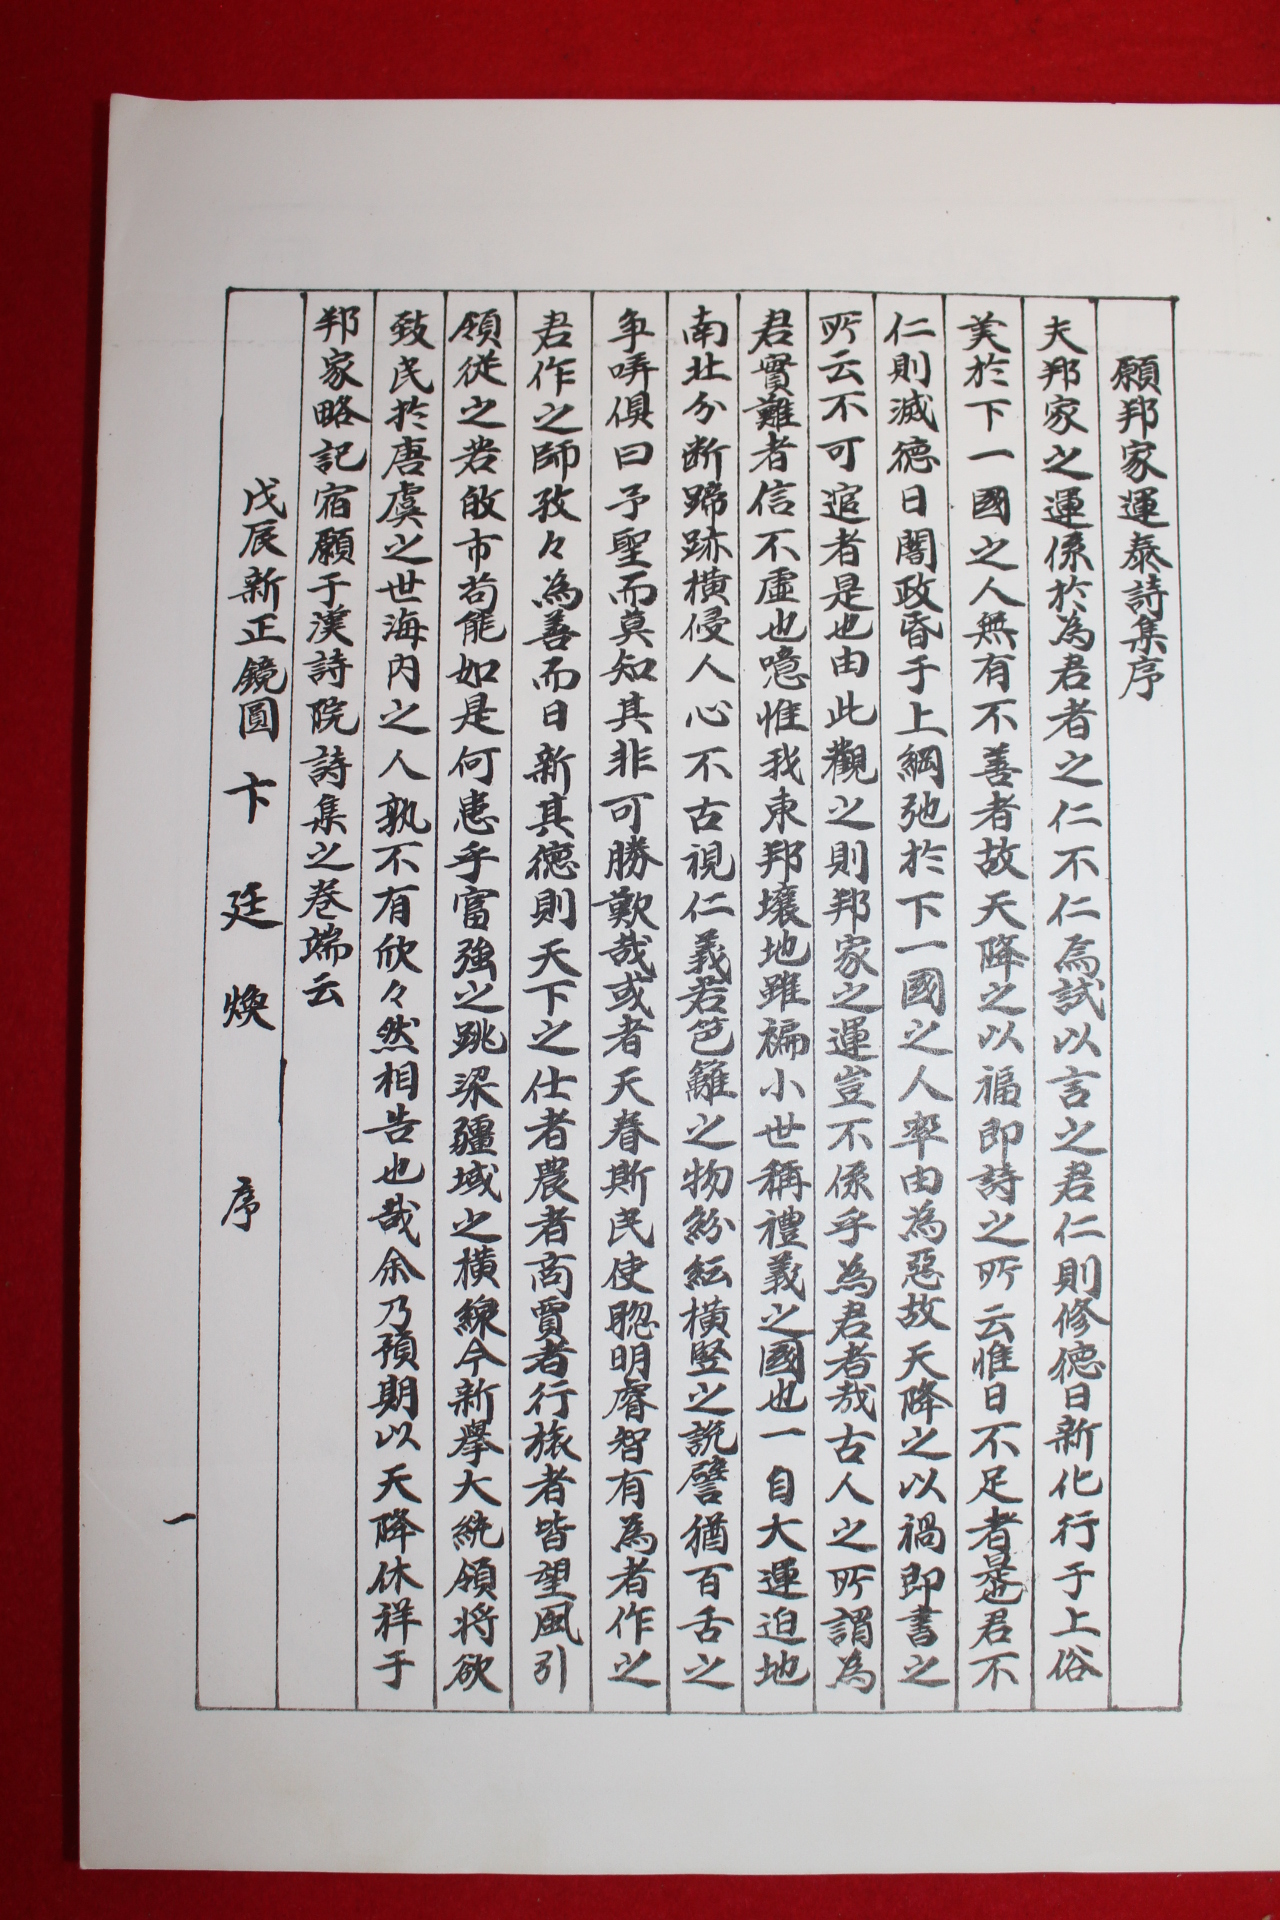 願邦家運泰詩集序
夫邦家之運係於為君者之仁不仁焉試以言之君仁則修德日新化行于上俗
美於下一國之人無有不善者故天降之以福即詩之所云惟日不足者是也君不
仁則滅德日闇政昏于上綱弛於下一國之人率由為惡故天降之以禍即書之
所云不可逭者是也由此觀之則邦家之運豈不係乎為君者哉古人之所謂為
君實難者信不虛也噫惟我東邦壤地雖褊小世稱禮義之國也一自大運迫地
南北分断蹄跡橫侵人心不古視仁義若笆籬之物紛紜橫竪之說譬猶百舌之
争哢俱曰予聖而莫知其非可勝歎哉或者天眷斯民使聡明睿智有為者作之
君作之師孜々為善而日新其德則天下之仕者農者商賈者行旅者皆望風引
領從之若歸市苟能如是何患乎富強之跳梁疆域之橫線今新擧大統領將欲
致民於唐虞之世海內之人孰不有欣々然相告也哉余乃預期以天降休祥于
邦家略記宿願于漢詩院詩集之卷端云
戊辰新正鏡圓 卞廷煥 序
一